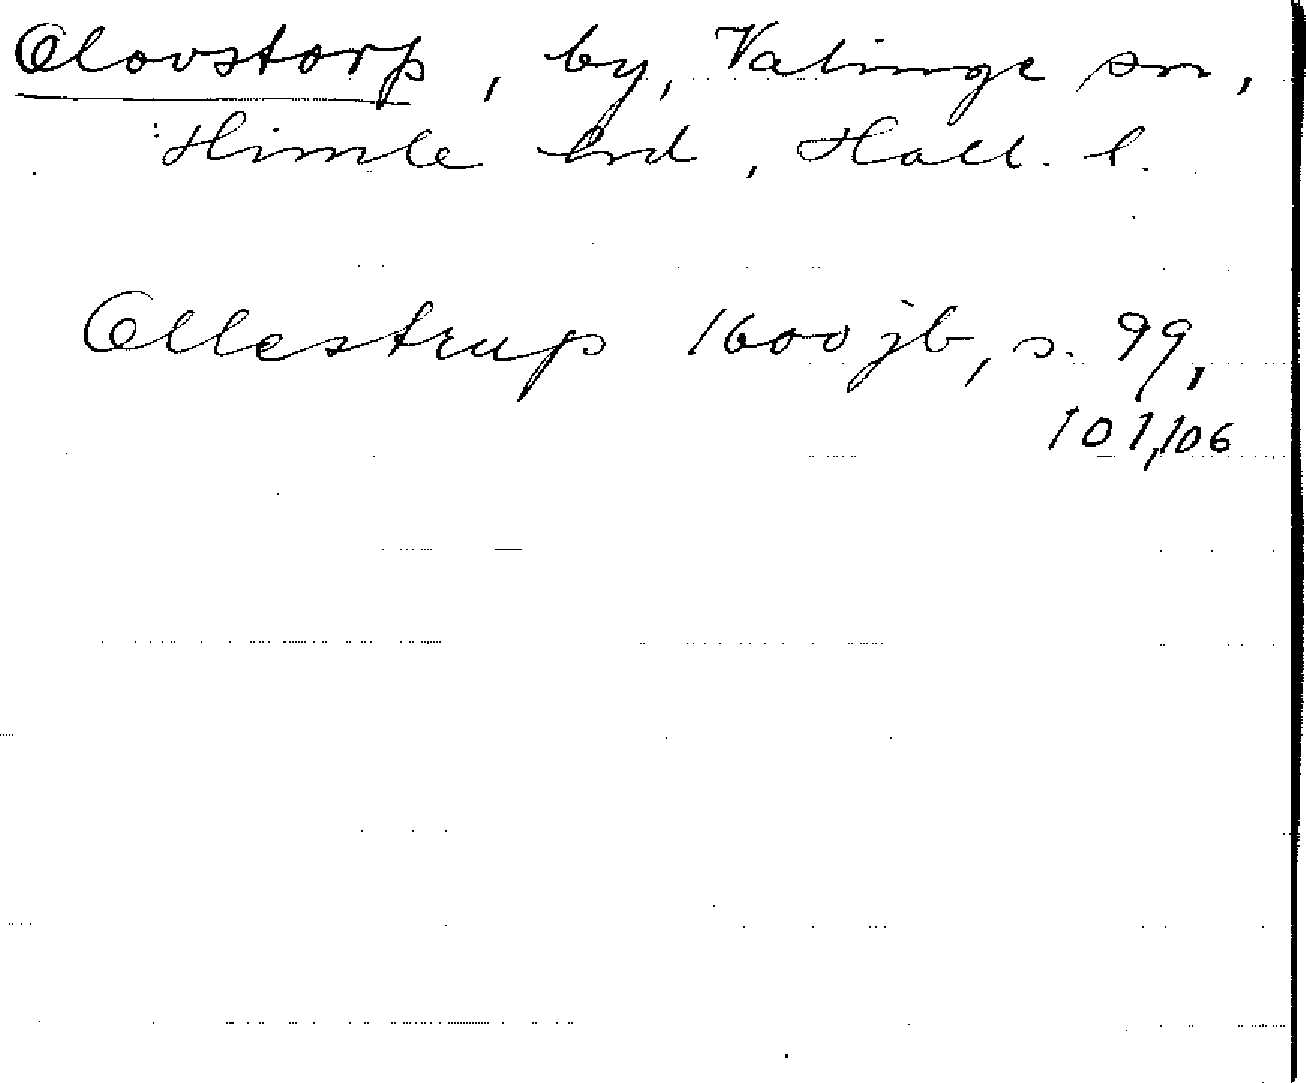 Olovstorp, by, Valinge sn,
Himle hrd, Hall. l.
Ollestrup 1600 jb, s. 99,
101, 106